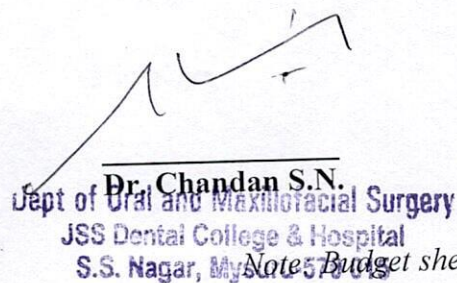 Dr. Chandan S.N.
Dept of Oral and Maxillofacial Surgery
JSS Dental College & Hospital
S.S. Nagar, Mysuru-570 015
Note: Budget she